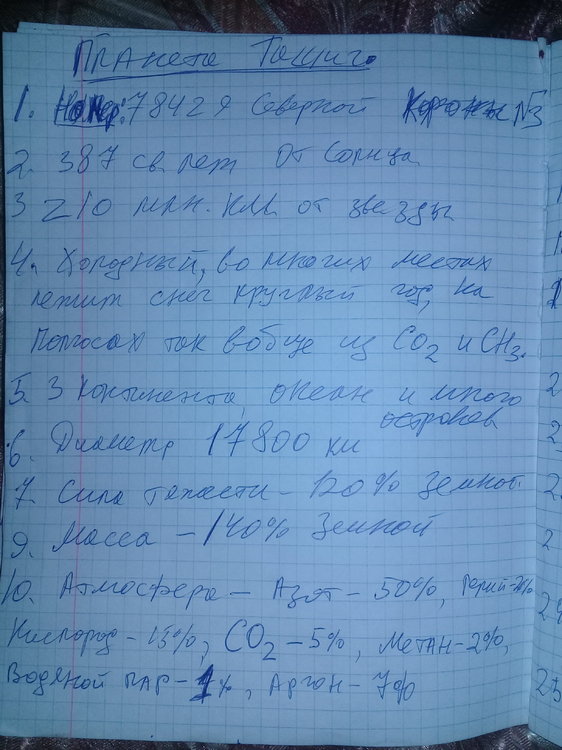 Планета Тощиг.
1. Номер: 78429 Северной Короны №3
2. 387 св. лет от Солнца
3 210 млн. км от звезды
4. Холодный, во многих местах
лежит снег круглый год, на
полюсах так вобще из CO2 и CH3.
5. 3 континента, океан и много
островов
6. Диаметр 17800 км
7. Сила тяжести - 120% Земной.
9. Масса - 140% Земной
10. Атмосфера - Азот - 50%, Гелий - 20%
Кислород - 15%, CO2 - 5%, Метан - 2%,
Водяной пар - 1%, Аргон - 7%